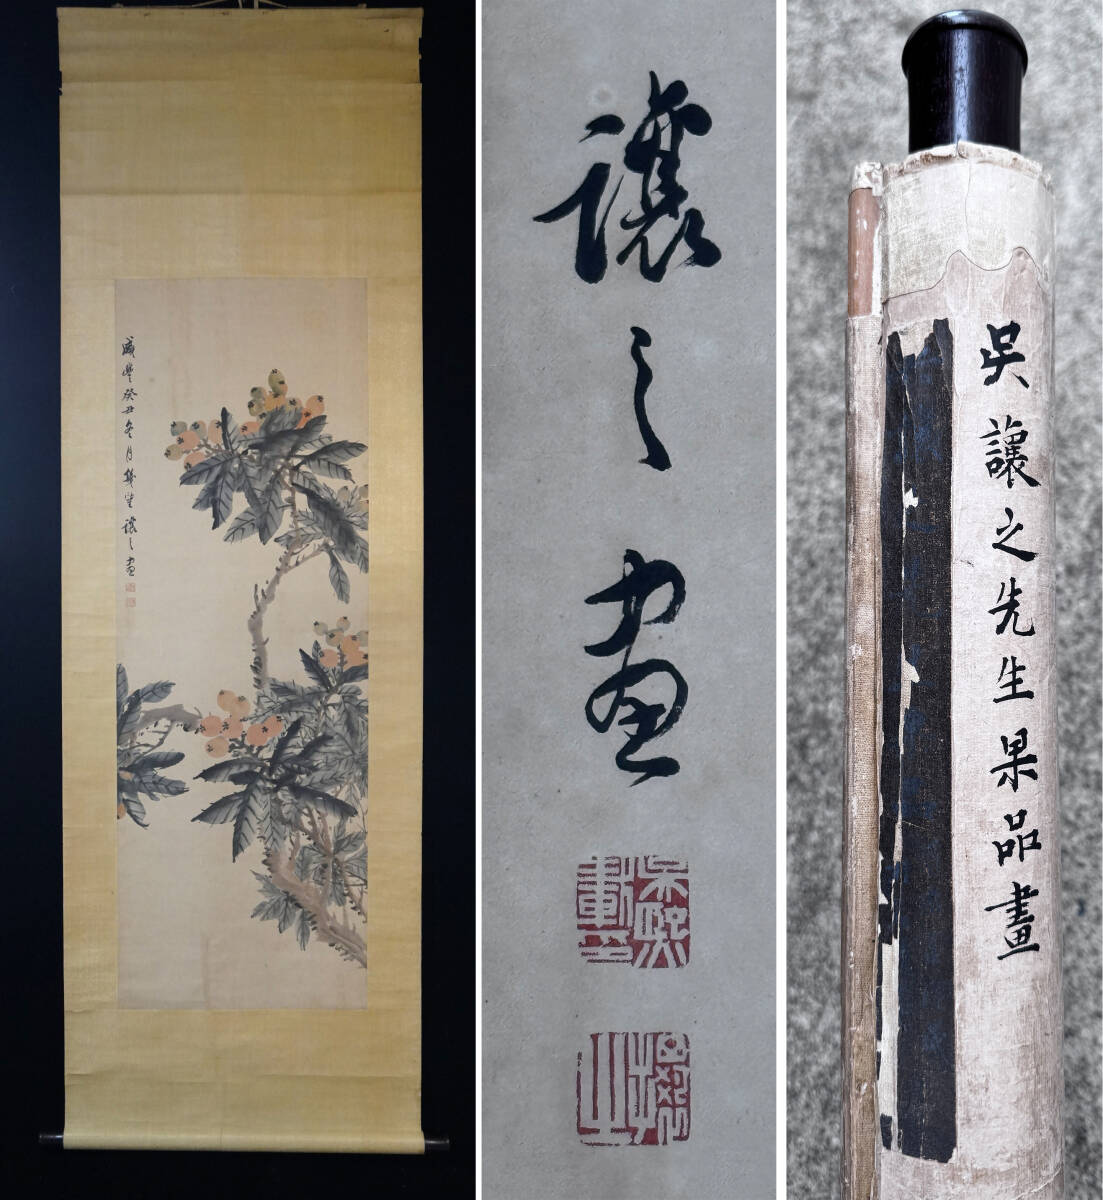 咸豐癸丑冬月
讓之畫
讓之画
吳讓之先生果品畫